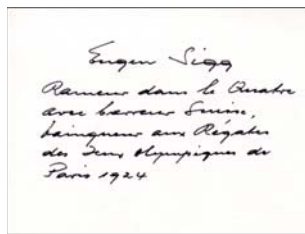 Eugen Sigg
Rameur dans le Quatre
avec barreur Suisse,
vainqueur aux Régates
des Jeux olympiques de
Paris 1924